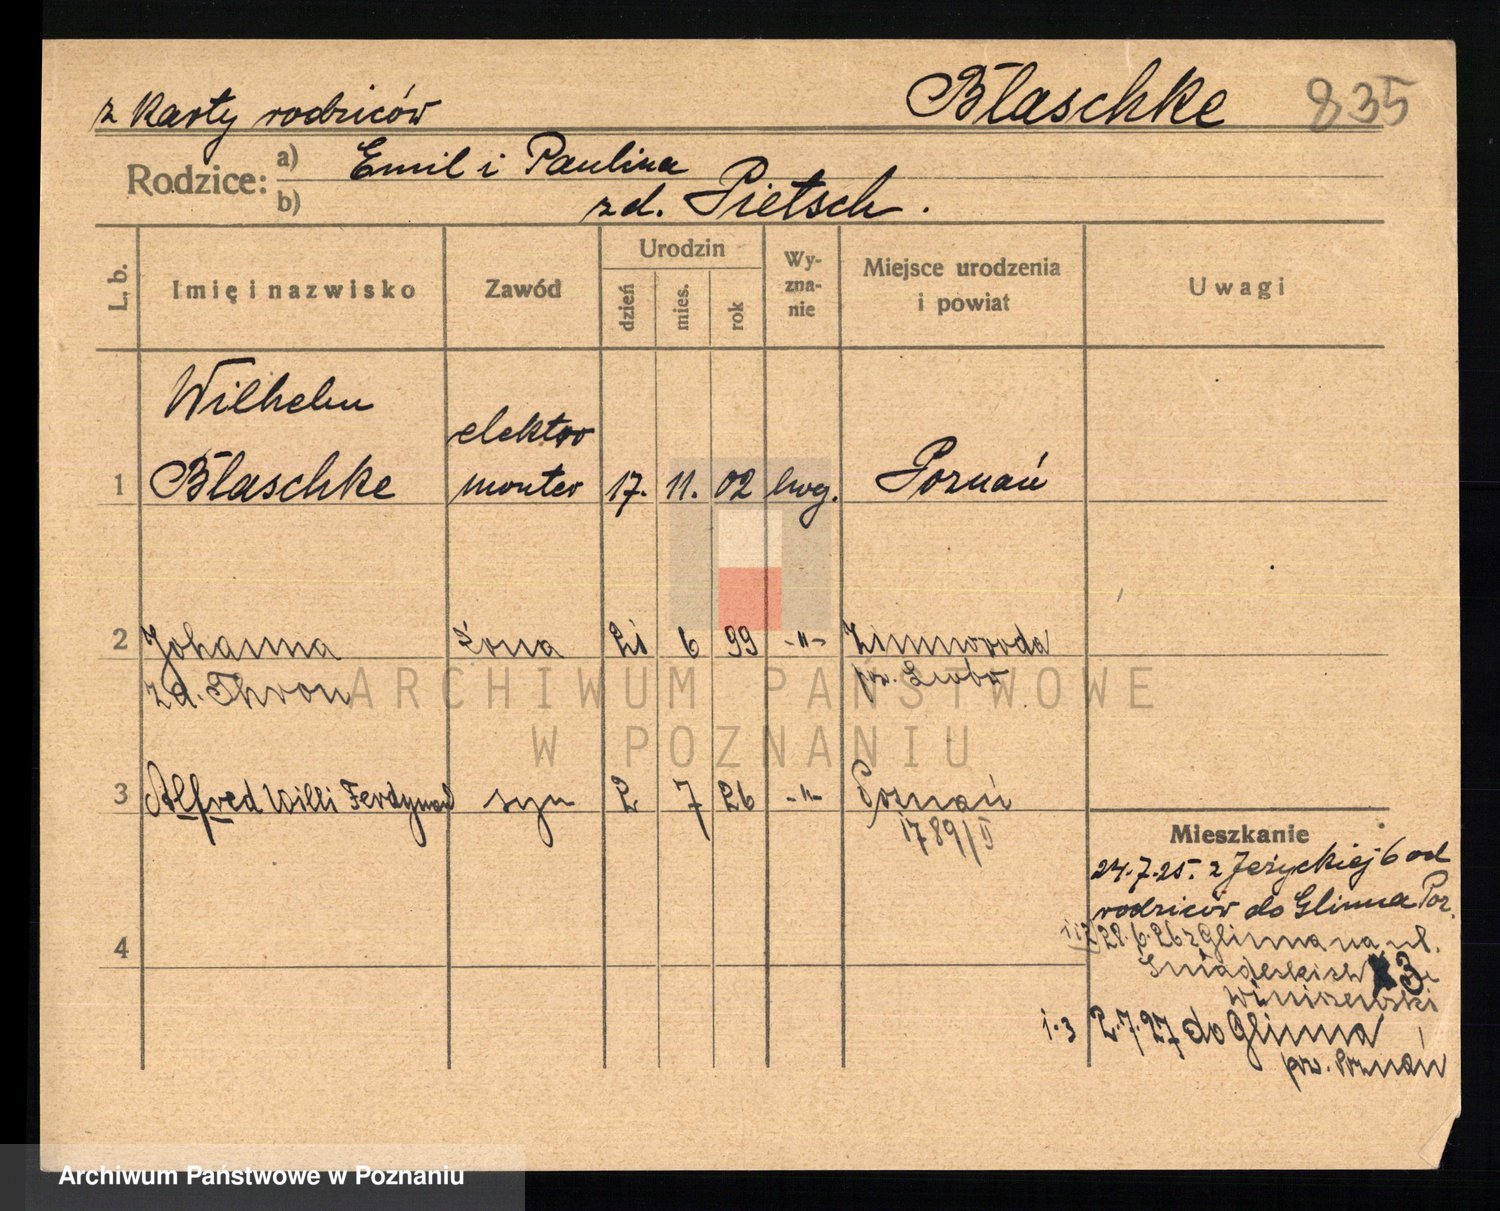 z karty rodziców
Blaschke 835
Rodzice: a) Emil i Paulina
b) zd. Pietsch.
L. b.
Imię i nazwisko
Zawód
Urodzin
dzień
mies.
rok
Wy-
zna-
nie
Miejsce urodzenia
i powiat
Uwagi
Wilhelm
elektro
1 Blaschke monter 17. 11. 02 Poznań
2 Johanna żona 21 6 99 -"-
zd. Thron
3 Alfred Willi Ferdynand syn 2 7 26 -"- Poznań
1789/II
Mieszkanie
24.7.25. z Jeżyckiej 6 od
rodziców do Glinna Poz.
1 i 2) 28.6.26 z Glinna na ul.
Śniadeckich 3
Winiszewski
1-3 2.7.27 do Glinna
pow. Poznań
4
ARCHIWUM PAŃSTWOWE
W POZNANIU
Archiwum Państwowe w Poznaniu